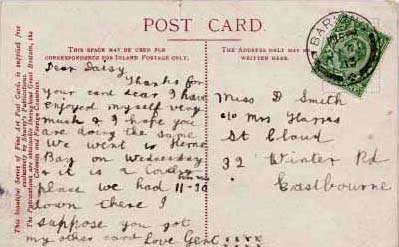 POST CARD
THIS SPACE MAY BE USED FOR
CORRESPONDENCE FOR INLAND POSTAGE ONLY.
Dear Daisy
Thanks for
your card dear I have
enjoyed myself very
much & I hope you
are doing the same
We went to Herne
Bay on Wednesday
& it is a Lovely
place we had
down there I
suppose you got
my other card Love Gert
xxxx
THE ADDRESS ONLY MAY BE
WRITTEN HERE.
Miss D Smith
c/o Mrs Harris
St Cloud
32 Winter Rd
Eastbourne
This beautiful Series of Fine Art Post Cards is supplied free
exclusively by Shurey's Publications.
The Publications are obtainable throughout Great Britain, the
Colonies and Foreign Countries.